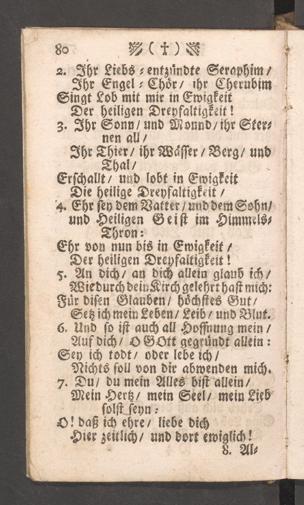 80 ( † )
2. Ihr Liebs-entzündte Seraphim/
Ihr Engel-Chör/ ihr Cherubim
Singt Lob mit mir in Ewigkeit
Der heiligen Dreyfaltigkeit!
3. Ihr Sonn/ und Monnd/ ihr Ster-
nen all/
Ihr Thier/ ihr Wässer/ Berg/ und
Thal/
Erschallt/ und lobt in Ewigkeit
Die heilige Dreyfaltigkeit/
4. Ehr sey dem Vatter/ und dem Sohn/
und Heiligen Geist im Himmels-
Thron:
Ehr von nun bis in Ewigkeit/
Der heiligen Dreyfaltigkeit!
5. An dich/ an dich allein glaub ich/
Wie durch dein Kirch gelehrt hast mich:
Für disen Glauben/ höchstes Gut/
Setz ich mein Leben/ Leib/ und Blut.
6. Und so ist auch all Hoffnung mein/
Auf dich/ O GOtt gegründt allein:
Sey ich todt/ oder lebe ich/
Nichts soll von dir abwenden mich.
7. Du/ du mein Alles bist allein/
Mein Hertz/ mein Seel/ mein Lieb
solst seyn:
O! daß ich ehre/ liebe dich
Hier zeitlich/ und dort ewiglich!
8. Al-